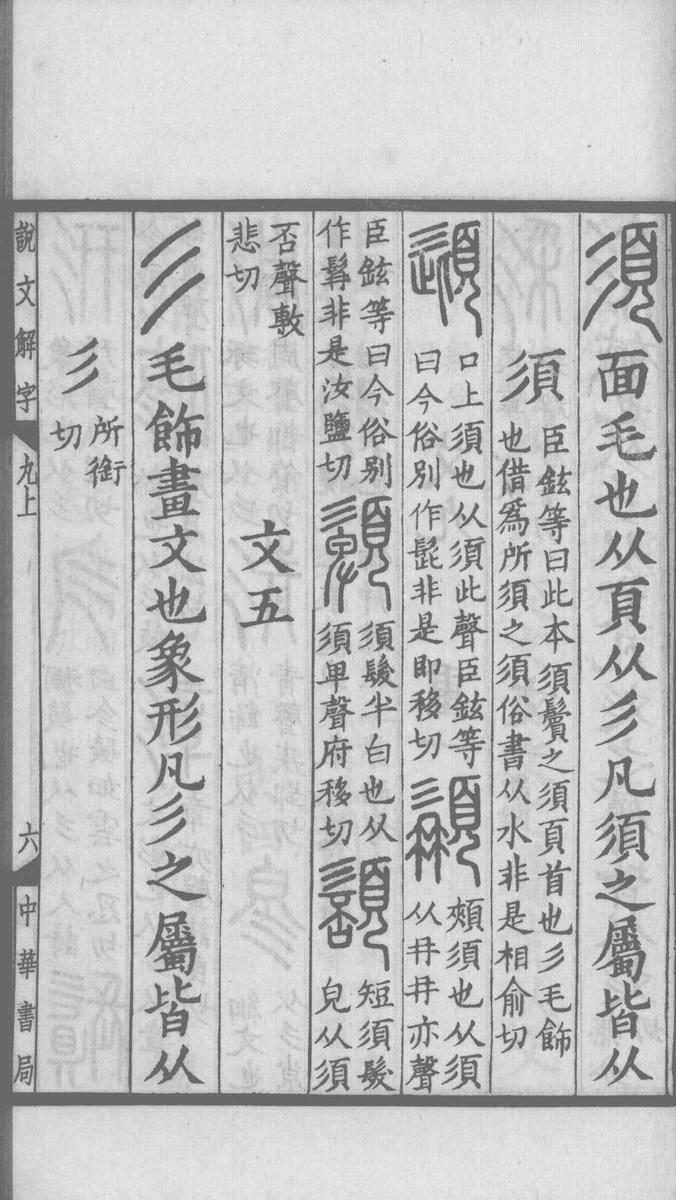 須 面毛也从頁从彡凡須之屬皆从
須 臣鉉等曰此本須鬢之須頁首也彡毛飾
也借爲所須之須俗書从水非是相俞切
頾 口上須也从須此聲臣鉉等
曰今俗別作髭非是即移切
䫇 頰須也从須
从冄冄亦聲
臣鉉等曰今俗別
作髥非是汝鹽切
𩓣 須髮半白也从
須卑聲府移切
䫠 短須髮
皃从須
否聲敷
悲切
文五
彡 毛飾畫文也象形凡彡之屬皆从
彡 所銜
切
說文解字 九上 六 中華書局